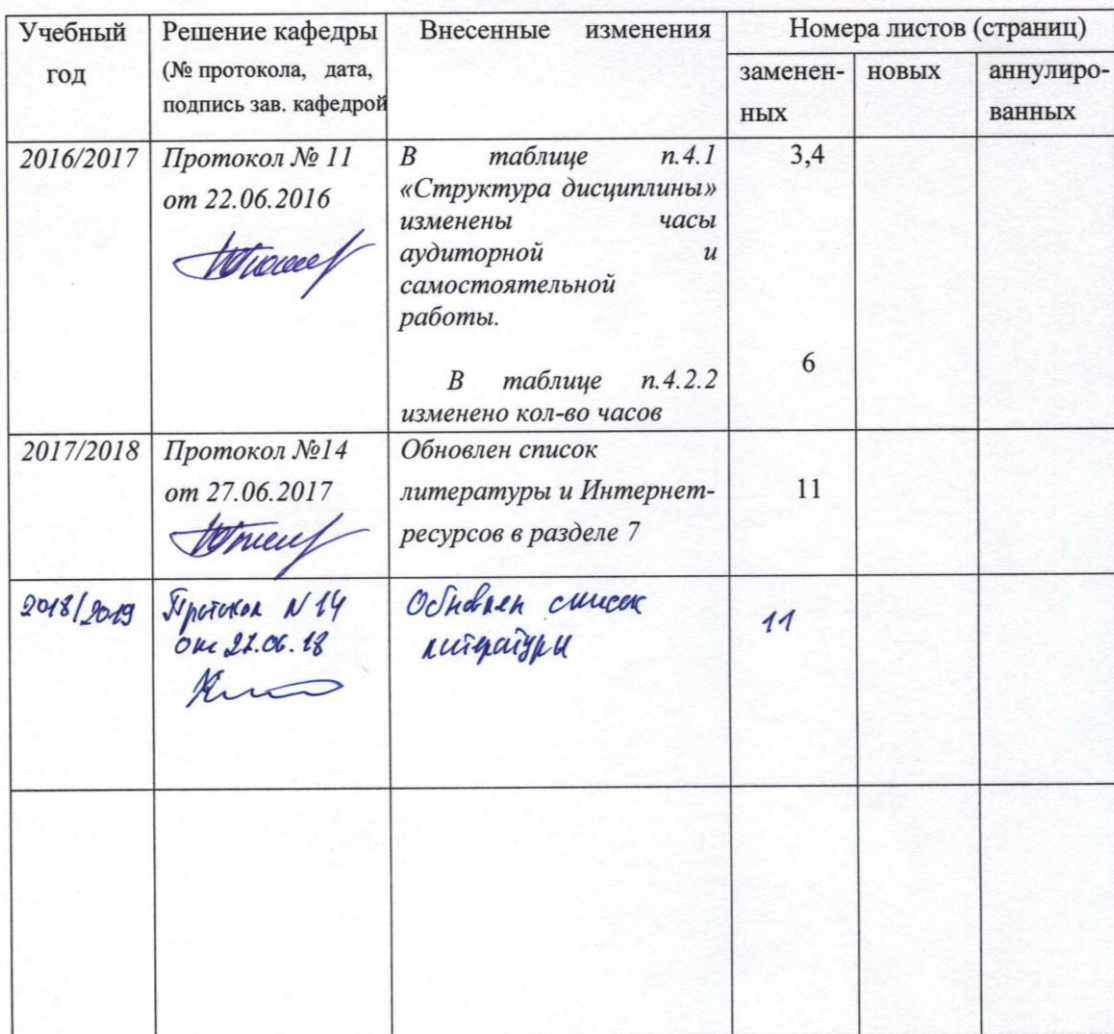 Учебный год
Решение кафедры
(№ протокола, дата,
подпись зав. кафедрой
Внесенные изменения
Номера листов (страниц)
заменен-
ных
новых
аннулиро-
ванных
2016/2017
Протокол № 11
от 22.06.2016
В таблице п.4.1
«Структура дисциплины»
изменены часы
аудиторной и
самостоятельной
работы.
3,4
В таблице п.4.2.2
изменено кол-во часов
6
2017/2018
Протокол №14
от 27.06.2017
Обновлен список
литературы и Интернет-
ресурсов в разделе 7
11
2018/2019
Протокол N 14
от 27.06.18
Обновлен список
литературы
11